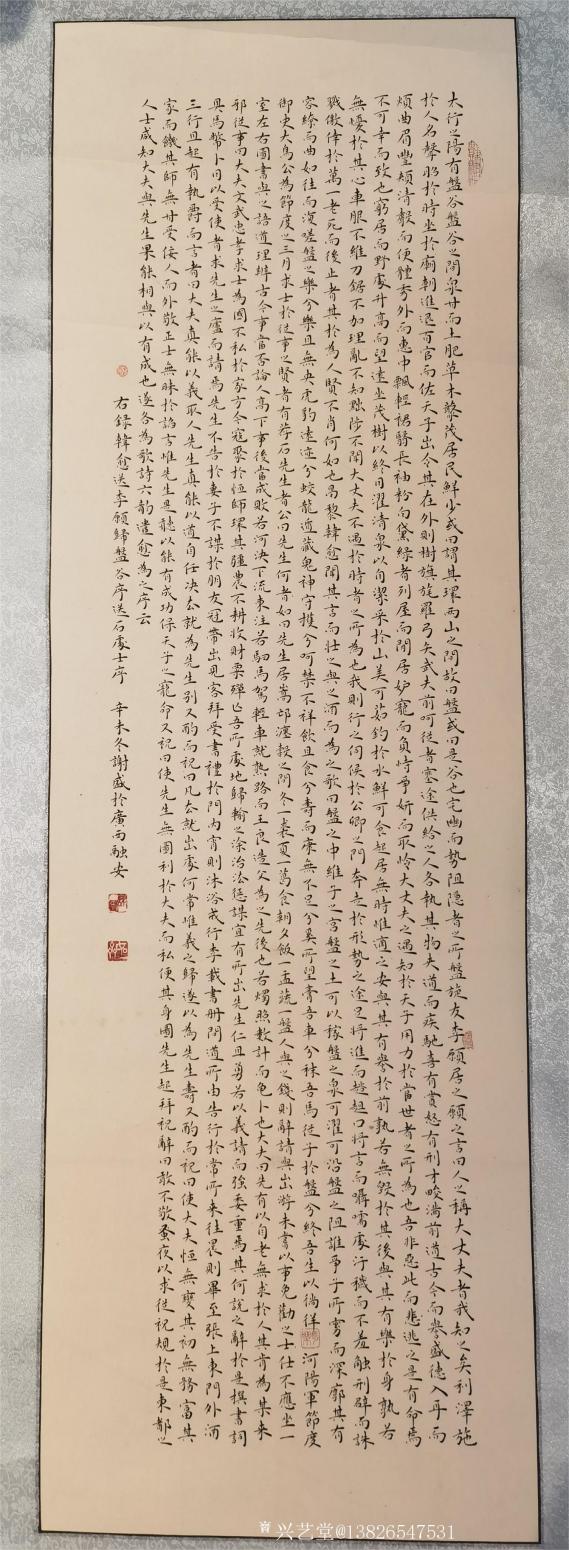 太行之陽有盤谷盤谷之閒泉甘而土肥草木藂茂居民鮮少或曰謂其環兩山之閒故曰盤或曰是谷也宅幽而勢阻隐者之所盤旋友李願居之願之言曰人之稱大丈夫者我知之矣利澤施
於人名聲昭於時坐於廟朝進退百官而佐天子出令其在外則樹旗旄羅弓矢武夫前呵從者塞途供給之人各執其物夫道而疾馳喜有賞怒有刑才畯滿前道古今而譽盛德入耳而
煩曲眉豐頰清聲而便體秀外而惠中飄輕裾翳長袖粉白黛緑者列屋而閒居妒寵而負恃爭妍而取怜大丈夫之遇知於天子用力於當世者之所為也吾非惡此而逃之是有命焉
不可幸而致也窮居而野處升高而望遠坐茂樹以終日濯清泉以自潔采於山美可茹釣於水鮮可食起居無時惟適之安與其有譽於前孰若無毀於其後與其有樂於身孰若
無憂於其心車服不維刀鋸不加理亂不知黜陟不聞大丈夫不遇於時者之所為也我則行之伺侯於公卿之門奔走於形勢之途足將進而趦趄口將言而囁嚅處汙穢而不羞触刑辟而誅
戮儌倖於萬一老死而後止者其於為人賢不肖何如也昌黎韓愈聞其言而壯之與之酒而為之歌曰盤之中維子之宮盤之土可以稼盤之泉可濯可沿盤之阻誰爭子所窈而深廓其有
容繚而曲如往而復嗟盤之樂兮樂且無央虎豹遠迹兮蛟龍遁藏鬼神守護兮呵禁不祥飲且食兮壽而康無不足兮奚所望膏吾車兮秣吾馬從子於盤兮終吾生以徜徉河陽軍節度
御史大烏公為節度之三月求士於從事之賢者有荐石先生者公曰先生何者如曰先生居嵩邙瀍榖之閒冬一裘夏一葛食朝夕飯一盂蔬一盤人與之錢則辭請與出游未嘗以事免勸之士仕不應坐一
室左右圖書與之語道理辨古今事當否論人高下事後當成敗若河決下流東注若駟馬駕輕車就熟路而王良造父為之先後也若燭照數計而龟卜也大夫曰先有以自老無求於人其肯為某来
邪從事曰大夫文武忠孝求士為國不私於家方今寇聚於恒師環其疆農不耕收財粟殫亡吾所處地歸輸之涂治法征謀宜有所出先生仁且勇若以義請而強委重焉其何說之辭於是撰書詞
具馬幣卜日以受使者求先生之廬而請焉先生不告於妻子不謀於朋友冠帶出見客拜受書禮於門內宵則沐浴戒行李載書册問道所由告行於常所来往晨則畢至張上東門外酒
三行且起有執爵而言者曰大夫真能以義取人先生真能以道自任決去就為先生别又酌而祝曰凡去就出處何常惟義之歸遂以為先生壽又酌而祝曰使大夫恒無變其初無務富其
家而饑其師無甘受佞人而外敬正士無昧於諂言惟先生是聽以能有成功保天子之寵命又祝曰使先生無圖利於大夫而私便其身圖先生起拜祝辭曰敢不敬蚤夜以求從祝規於是東都之
人士咸知大夫與先生果能相與以有成也遂各為歌詩六韵遣愈為之序云
右録韓愈送李願歸盤谷序送石處士序 辛未冬謝盛於廣西融安
兴艺堂@13826547531